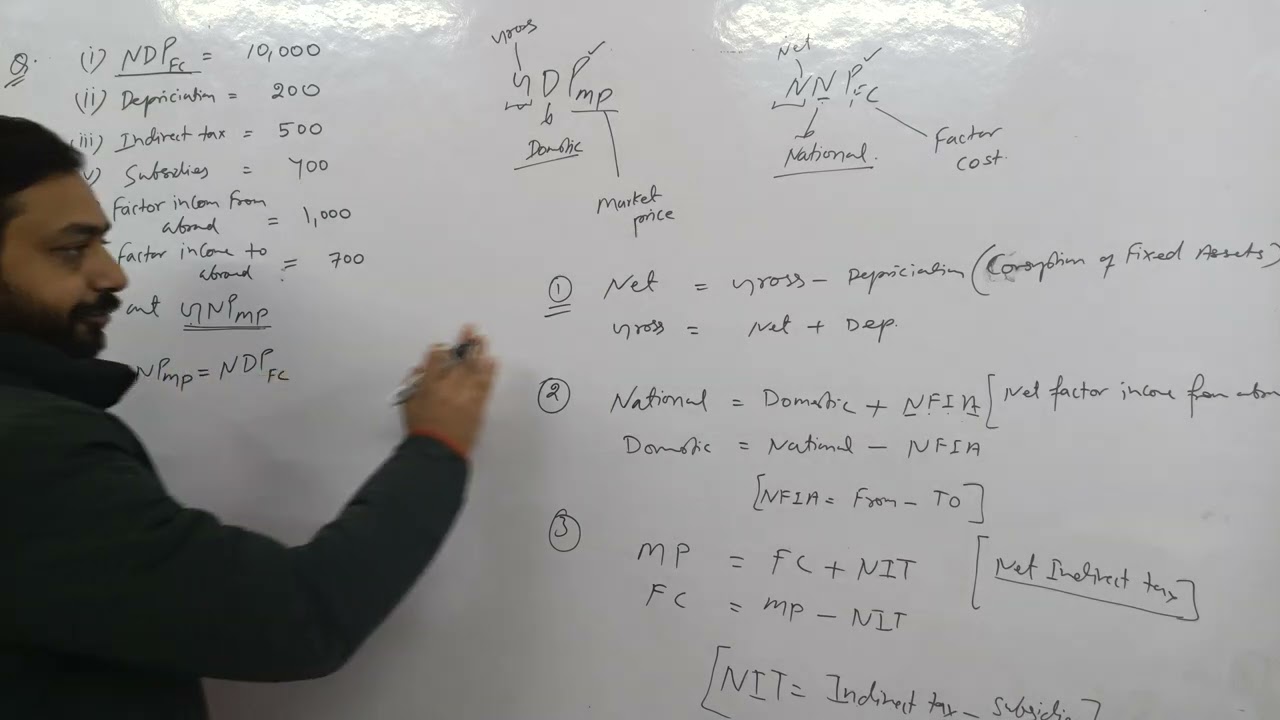 Q. (i) NDP_FC = 10,000
(ii) Depriciation = 200
iii) Indirect tax = 500
v) Subsidies = 400
Factor incom from abroad = 1,000
factor income to abroad = 700
GNP_MP
NP_MP = NDP_FC
gross
GDP_MP ✓
Domstic
Market price
Net
NNP_FC ✓
National.
Factor cost.
① Net = Gross - Depriciation (Consuption of Fixed Assets)
Gross = Net + Dep.
② National = Domstic + NFIA [Net factor incone from
Domstic = National - NFIA
[NFIA = From - To]
③ MP = FC + NIT [Net Indirect tax]
FC = MP - NIT
[NIT = Indirect tax - Subsidie]